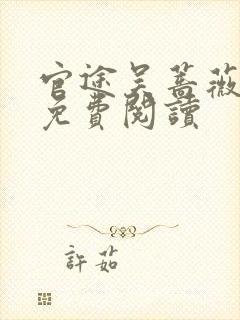 官途吴蔷薇
免費閱讀
許茹